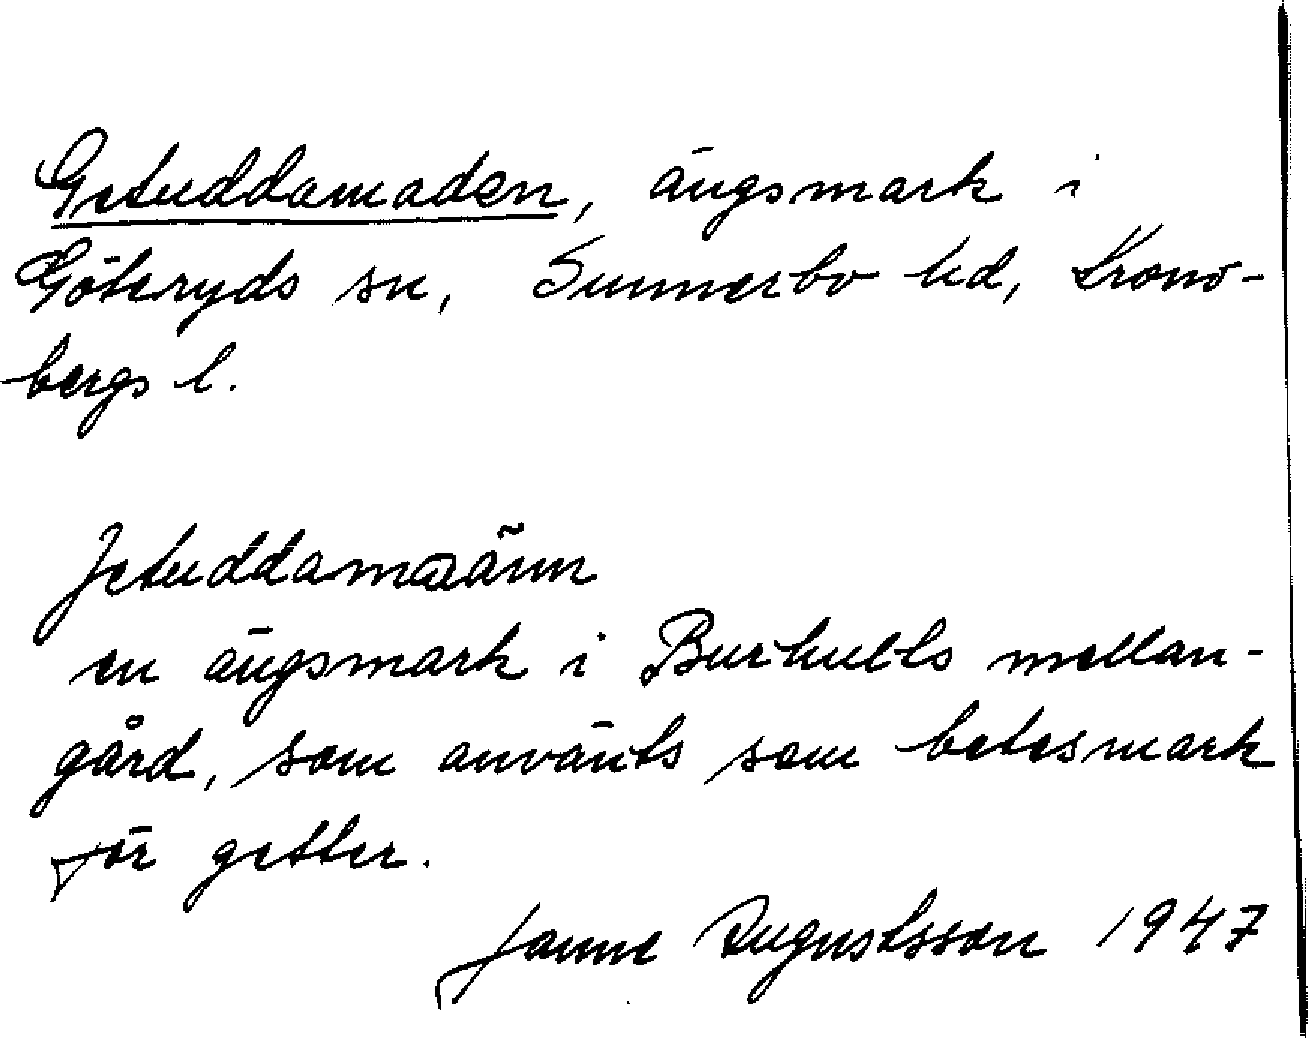 Getuddamaden, ängsmark i
Göteryds sn, Sunnerbo hd, Krono-
bergs l.
Jetuddamaänn
en ängsmark i Burhults mellan-
gård, som använts som betesmark
för getter.
Janne Augustsson 1947